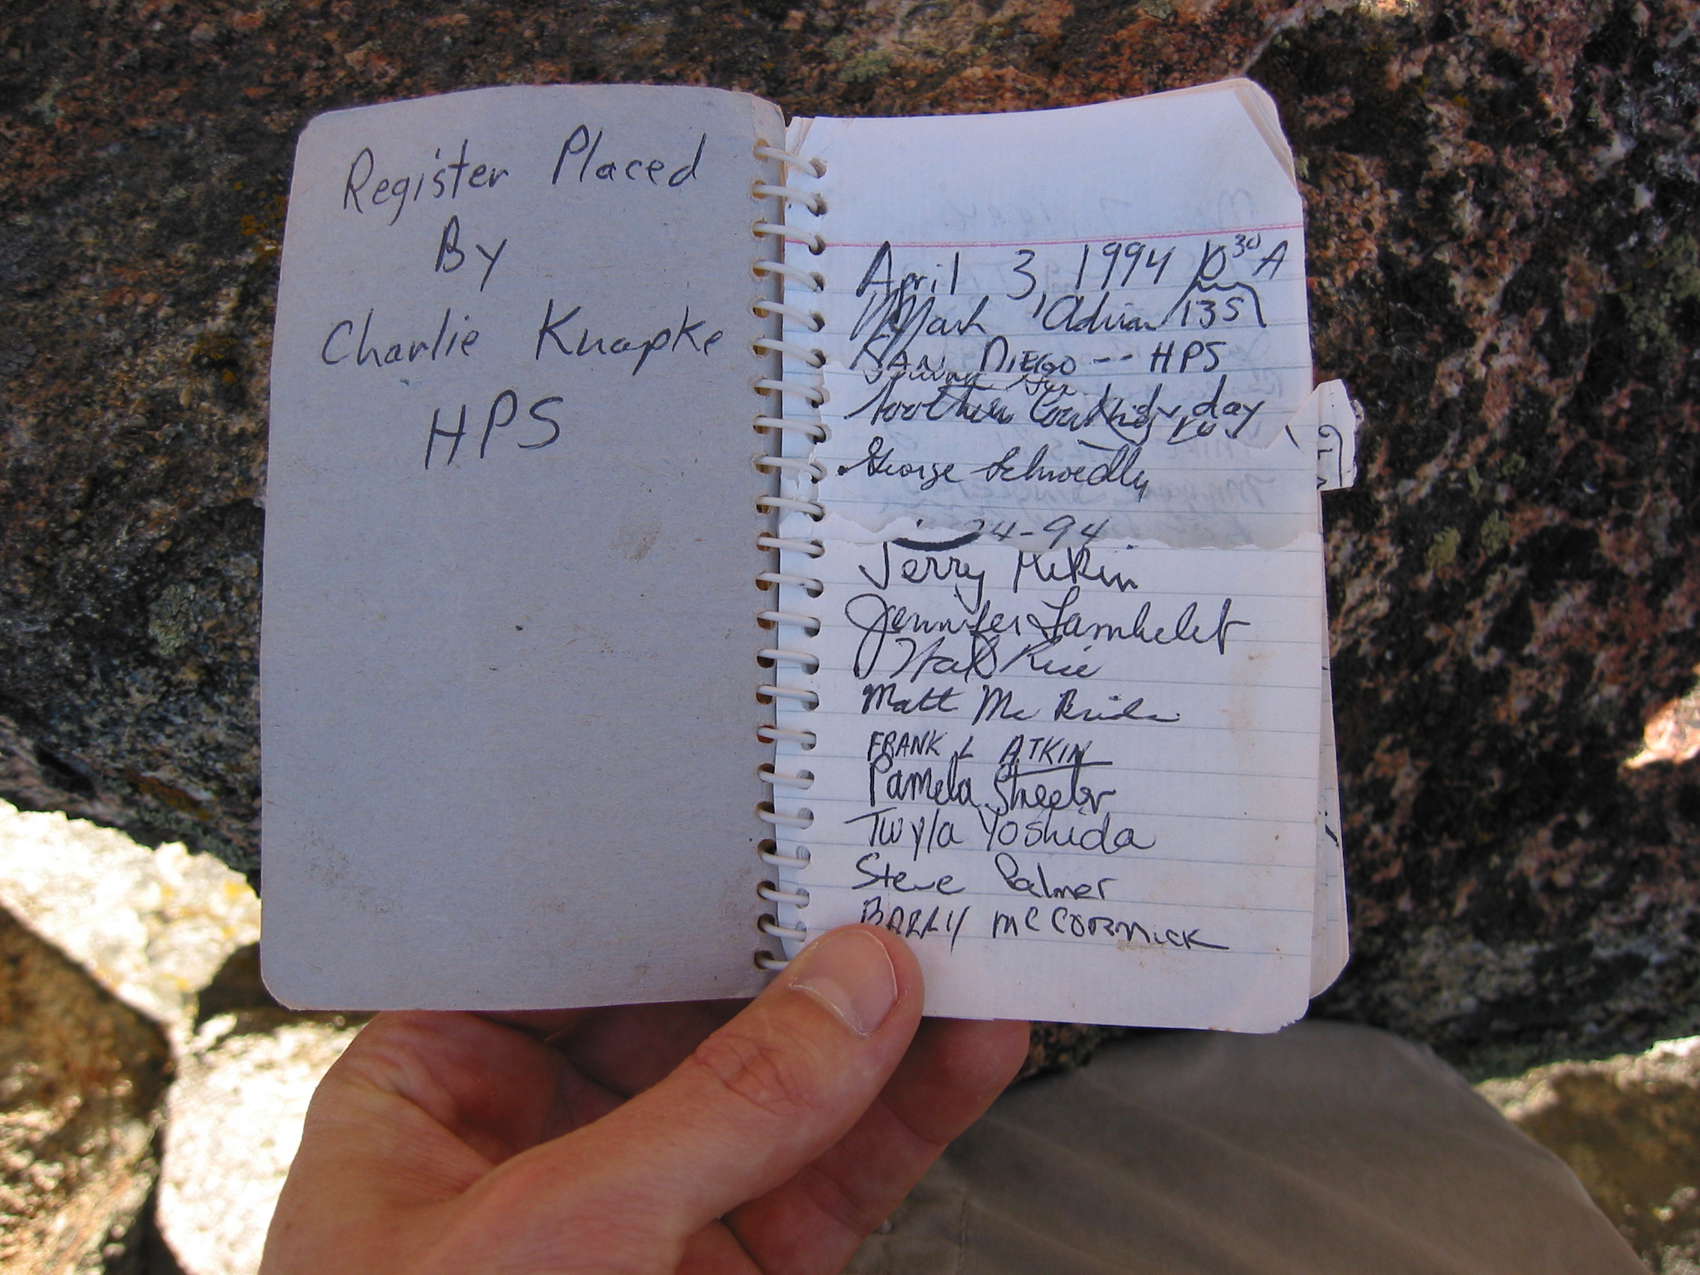 Register Placed
By
Charlie Knapke
HPS
April 3, 1994 10 30 A
Mark Adrian 135
SAN DIEGO -- HPS
day
George
24-94
Jerry
Jennifer Lambelet
Hal Rice
Matt McBride
FRANK L ATKIN
Pamela Streeter
Twyla Yoshida
Steve Palmer
BARRY MCCORMICK